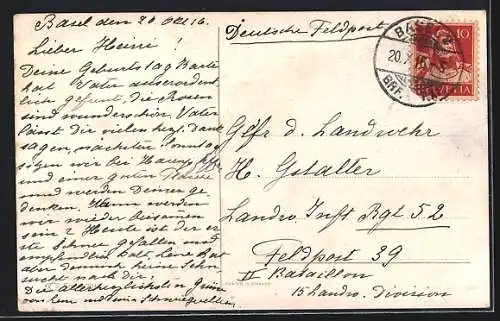 Basel den 20 Okt 16.
Lieber Heini!
Deine Geburtstag Karte
hat Vater ausserordent
lich gefreut, die Rosen
sind wunderschön, Vater
lässt dir vielen herzl. Dank
sagen, nächsten Sonntag
sitzen wir bei
und einer guten
und werden Deiner ge
denken. Wann werden
wir wieder beisammen
sein? Heute ist der er
ste Schnee gefallen und
empfindlich kalt,
aber dennoch keine Sehn
sucht nach dir!
Die allerherzlichsten Grüsse
von
Deutsche Feldpost
BASEL
20.X.16
BRF.
10
HELVETIA
Gefr d. Landwehr
H. Gstalter
Landw. Inft Rgt 52
Feldpost 39
II Bataillon
15 Landw. Division